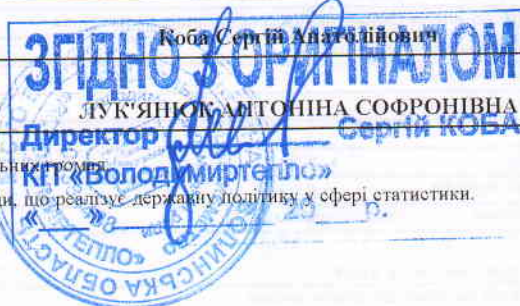 Коба Сергій Анатолійович
ЗГІДНО З ОРИГІНАЛОМ
ЛУК'ЯНЮК АНТОНІНА СОФРОНІВНА
Директор Сергій КОБА
КП «Володимиртепло»
що реалізує державну політику у сфері статистики.
« » 20 р.
ТЕПЛО»
ВОЛИНСЬКА ОБЛАСТЬ